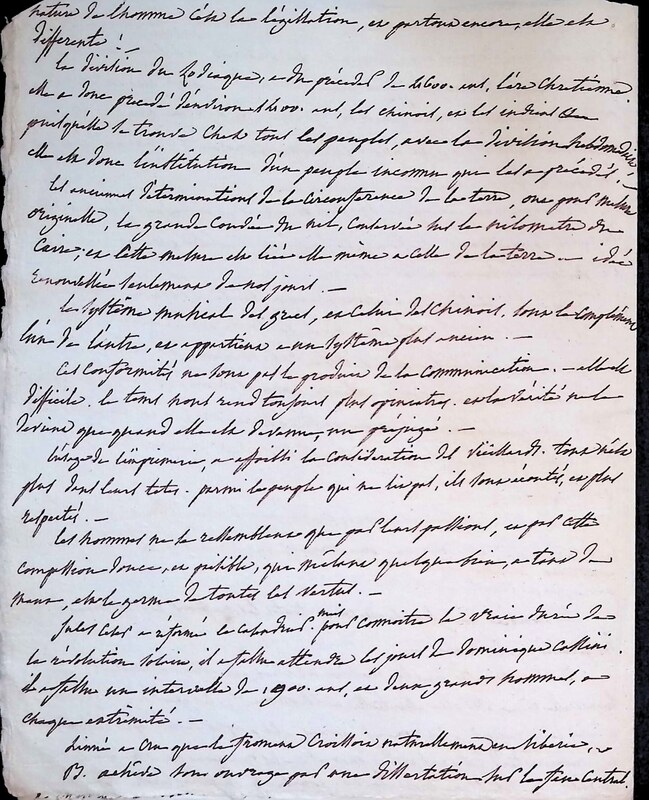 nature de l'homme c'est la législation, et partout encore, elle est
differente !
la division du Zodiaque, a du précéder de 4600. ans, l'ère Chretienne
elle a donc precedé d'environ 1400. ans, les chinois, et les indiens
puisqu'elle se trouve chez tous les peuples, avec la division hebdomadaire,
elle est donc l'institution d'un peuple inconnu qui les a précédés. —
les anciennes determinations de la circonference de la terre, ont pour mesure
originelle, la grande Coudée du nil, conservée sur le nilometre du
Caire; et cette mesure est liée elle même a celle de la terre. — idée
renouvellée seulement de nos jours. —
le système musical des grecs, et celui des Chinois, sont le complément
l'un de l'autre, et appartient a un système plus ancien. —
Ces conformités ne sont pas le produit de la communication. — elle est
difficile. le tems nous rend toujours plus opiniatres. et la vérité ne le
devient que quand elle est devenue, un préjugé. —
l'usage de l'imprimerie, a affoibli la consideration des vieillards. tout n'est
plus dans leurs tetes. parmi le peuple qui ne lit pas, ils sont écoutés, et plus
respectés. —
les hommes ne se ressemblent que par leurs passions, et par cette
compassion douce, et pénible, qui mélant quelque bien, a tant de
maux, est le germe de toutes les vertus. —
Jules Cesar a réformé le calendrier, mais pour connoitre la vraie durée de
la révolution solaire, il a fallu attendre les jours de dominique Cassini.
il a fallu un intervalle de 1900. ans, et deux grands hommes, a
chaque extrémité. —
Linné a cru que le froment croissoit naturellement en Siberie,
B. achève son ouvrage par une dissertation sur le feu central.